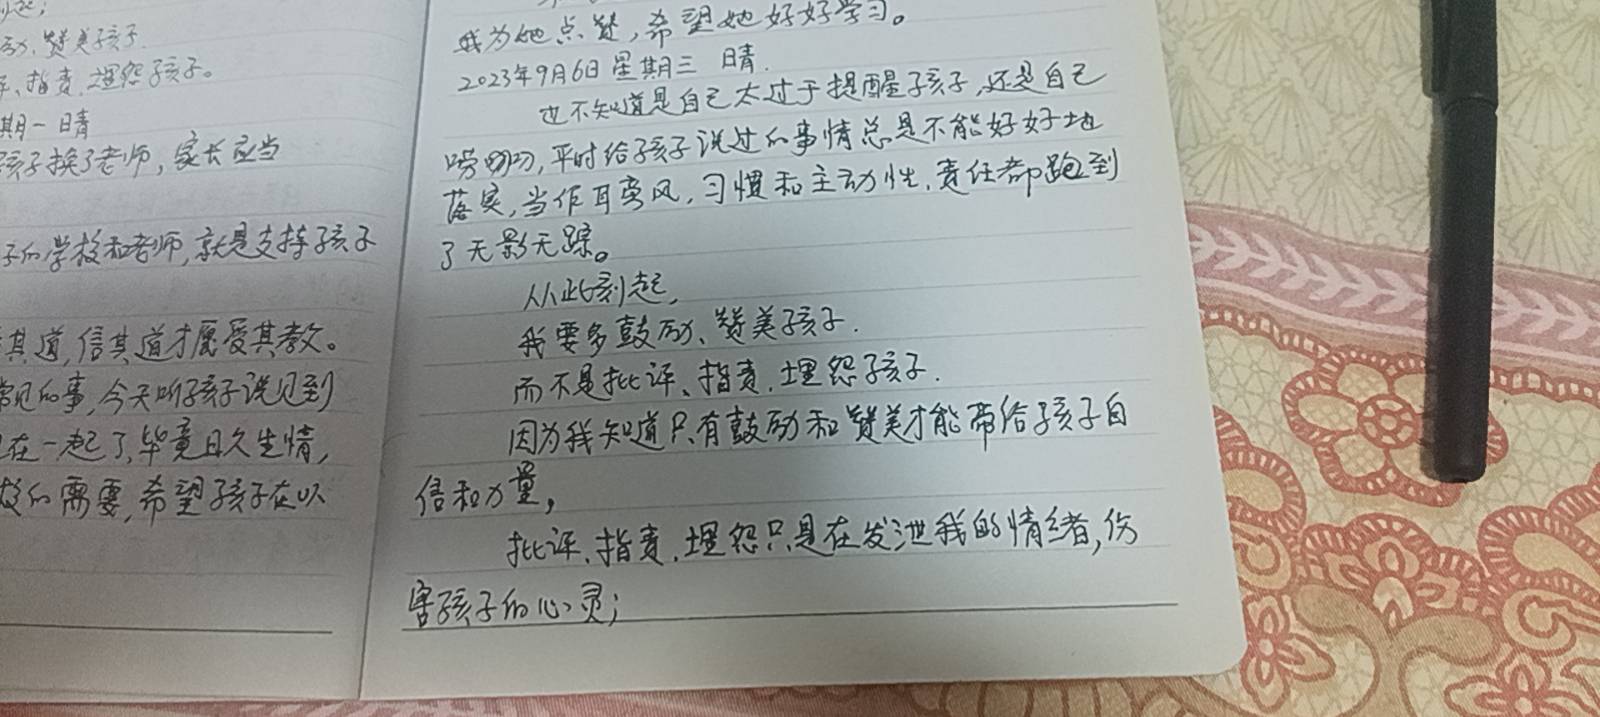 励、赞美孩子.
、指责、埋怨孩子。
期一 晴
孩子换了老师，家长应当
子的学校和老师，就是支持孩子
其道，信其道才愿受其教。
常见的事，今天听孩子说见到
在一起了，毕竟日久生情，
的需要，希望孩子在以
我为她点赞，希望她好好学习。
2023年9月6日 星期三 晴.
也不知道是自己太过于提醒孩子，还是自己
唠叨，平时给孩子说过的事情总是不能好好地
落实，当作耳旁风，习惯和主动性、责任都跑到
了无影无踪。
从此刻起，
我要多鼓励、赞美孩子.
而不是批评、指责、埋怨孩子.
因为我知道只有鼓励和赞美才能带给孩子自
信和力量，
批评、指责、埋怨只是在发泄我的情绪，伤
害孩子的心灵；